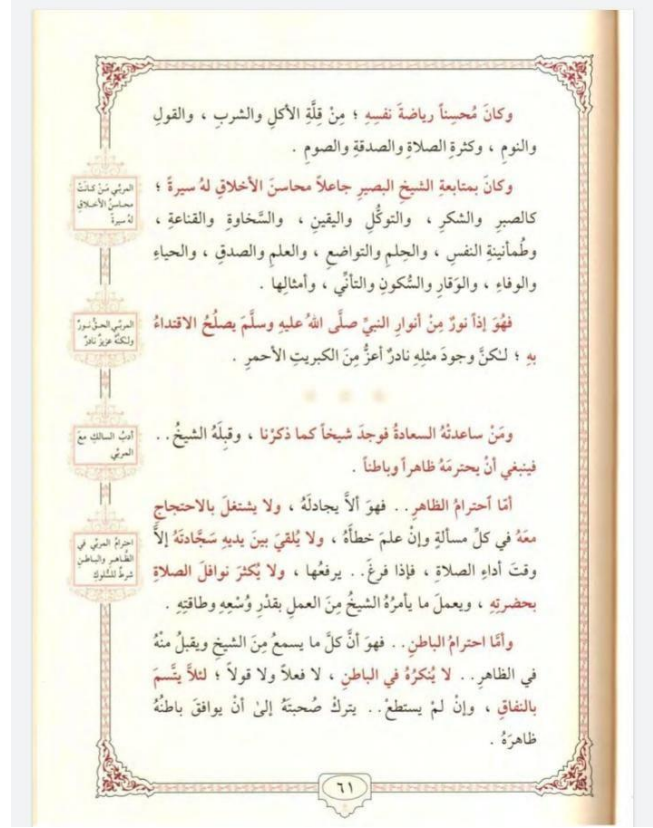 وكانَ مُحسِناً رياضةَ نفسِهِ ؛ مِنْ قِلَّةِ الأكلِ والشربِ ، والقولِ
والنومِ ، وكثرةِ الصلاةِ والصدقةِ والصومِ .
وكانَ بمتابعةِ الشيخِ البصيرِ جاعلاً محاسنَ الأخلاقِ لهُ سيرةً ؛
كالصبرِ والشكرِ ، والتوكُّلِ واليقينِ ، والسَّخاوةِ والقناعةِ ،
وطُمأنينةِ النفسِ ، والحِلمِ والتواضعِ ، والعلمِ والصدقِ ، والحياءِ
والوفاءِ ، والوَقارِ والسُّكونِ والتأنِّي ، وأمثالِها .
المربِّي مَنْ كانَتْ
محاسنُ الأخلاقِ
لهُ سيرةً
فهُوَ إذاً نورٌ مِنْ أنوارِ النبيِّ صلَّى اللهُ عليهِ وسلَّمَ يصلُحُ الاقتداءُ
بهِ ؛ لـٰكنَّ وجودَ مثلِهِ نادرٌ أعزُّ مِنَ الكبريتِ الأحمرِ .
المربِّي الحقُّ نورٌ
ولـٰكنَّهُ عزيزٌ نادرٌ
ومَنْ ساعدتْهُ السعادةُ فوجدَ شيخاً كما ذكرْنا ، وقبلَهُ الشيخُ . .
فينبغي أنْ يحترمَهُ ظاهراً وباطناً .
أدبُ السالكِ معَ
المربِّي
أمَّا ٱحترامُ الظاهرِ . . فهوَ ألاَّ يجادلَهُ ، ولا يشتغلَ بالاحتجاجِ
معَهُ في كلِّ مسألةٍ وإنْ علمَ خطأَهُ ، ولا يُلقيَ بينَ يديهِ سَجَّادتَهُ إلاَّ
وقتَ أداءِ الصلاةِ ، فإذا فرغَ . . يرفعُها ، ولا يُكثرَ نوافلَ الصلاةِ
بحضرتِهِ ، ويعملَ ما يأمرُهُ الشيخُ مِنَ العملِ بقدْرِ وُسْعِهِ وطاقتِهِ .
احترامُ المربِّي في
الظَّاهرِ والباطنِ
شرطٌ للسُّلوكِ
وأمَّا احترامُ الباطنِ . . فهوَ أنَّ كلَّ ما يسمعُ مِنَ الشيخِ ويقبلُ منْهُ
في الظاهرِ . . لا يُنكرُهُ في الباطنِ ، لا فعلاً ولا قولاً ؛ لئلاَّ يتَّسمَ
بالنفاقِ ، وإنْ لمْ يستطعْ . . يتركْ صُحبتَهُ إلىٰ أنْ يوافقَ باطنُهُ
ظاهرَهُ .
٦١